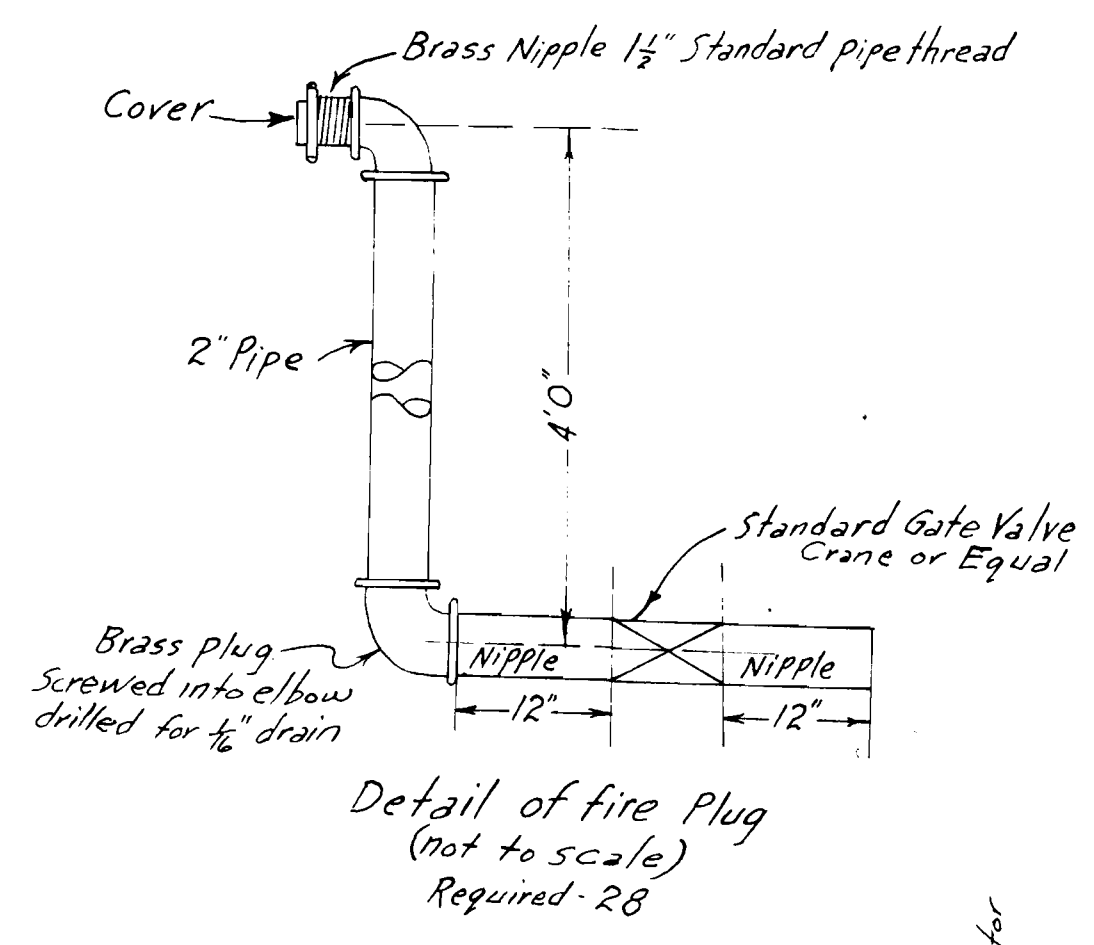 Brass Nipple 1½" Standard pipe thread
Cover
2" Pipe
4'0"
Standard Gate Valve
Crane or Equal
Brass plug
Screwed into elbow
drilled for 1/16" drain
Nipple
Nipple
12"
12"
Detail of fire Plug
(not to scale)
Required - 28
tor